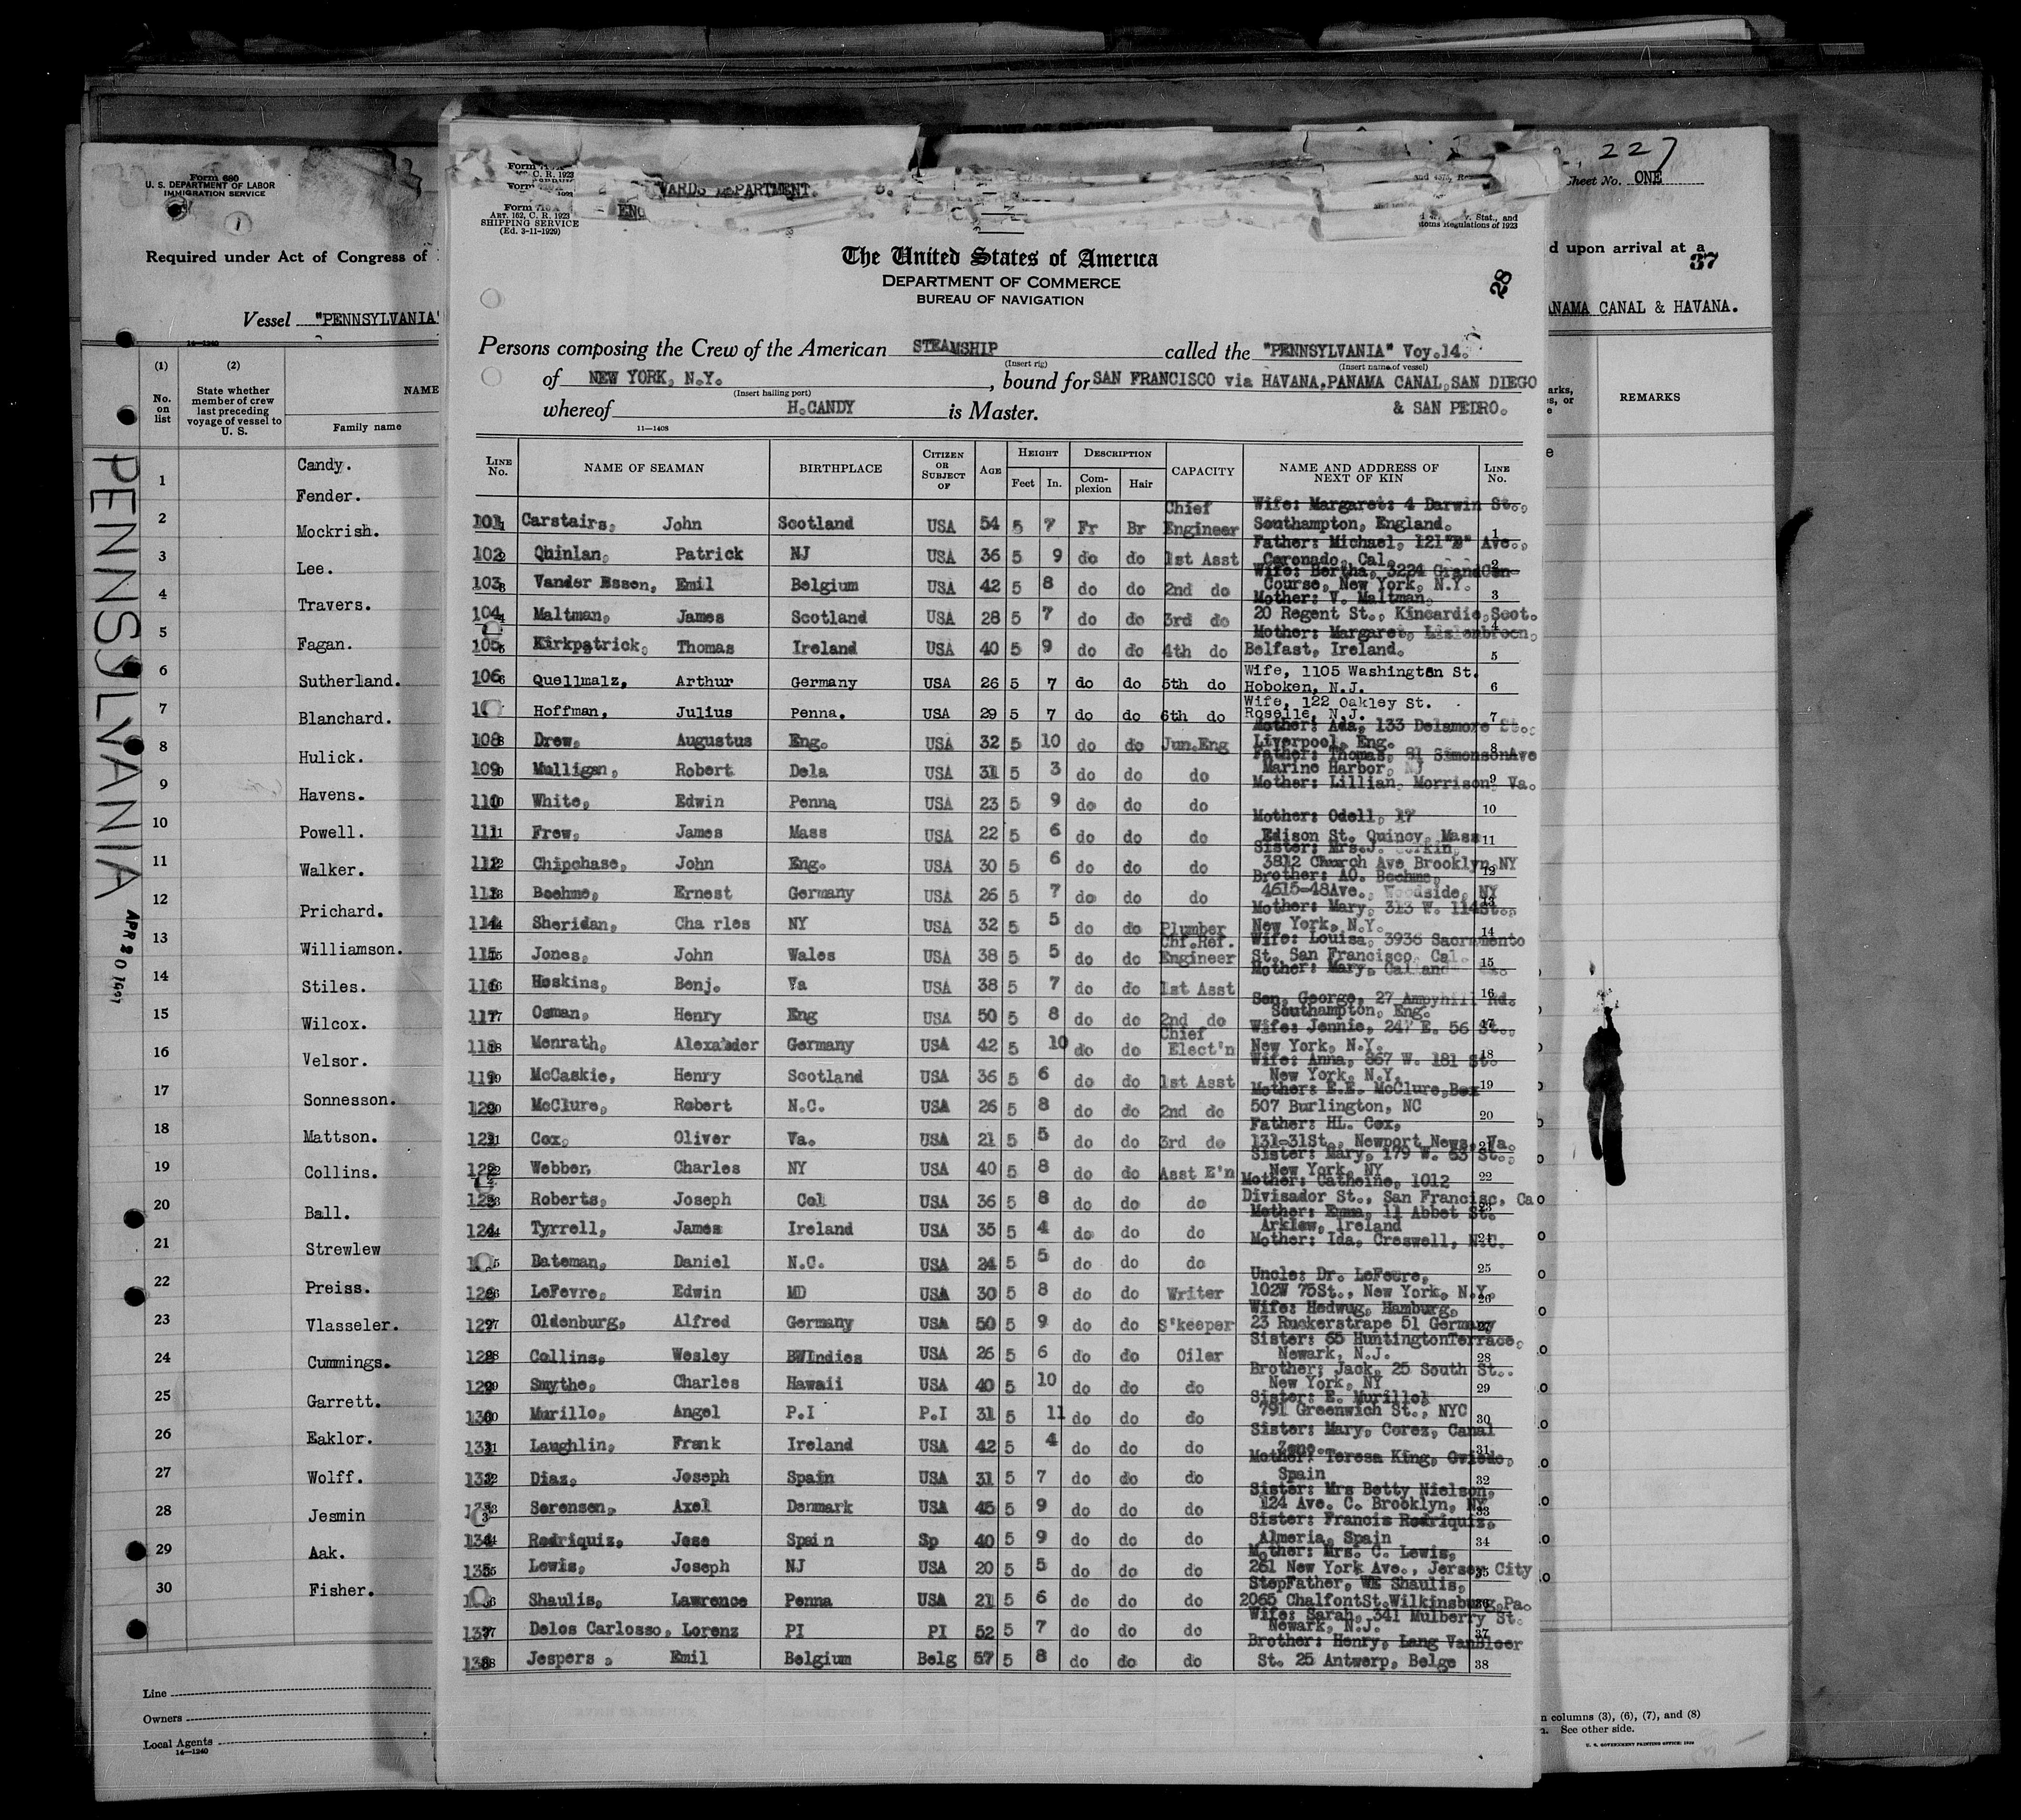 Form 680
U. S. DEPARTMENT OF LABOR
IMMIGRATION SERVICE
1
Required under Act of Congress of
Vessel "PENNSYLVANIA"
14—1240
(1) (2)
No. on list
State whether member of crew last preceding voyage of vessel to U. S.
NAME
Family name
PENNSYLVANIA
APR 20
Candy.
1
Fender.
2
Mockrish.
3
Lee.
4
Travers.
5
Fagan.
6
Sutherland.
7
Blanchard.
8
Hulick.
9
Havens.
10
Powell.
11
Walker.
12
Prichard.
13
Williamson.
14
Stiles.
15
Wilcox.
16
Velsor.
17
Sonnesson.
18
Mattson.
19
Collins.
20
Ball.
21
Strewlew
22
Preiss.
23
Vlasseler.
24
Cummings.
25
Garrett.
26
Eaklor.
27
Wolff.
28
Jesmin
29
Aak.
30
Fisher.
Line
Owners
Local Agents
14—1240
Form
C. R. 1923
WARDS DEPARTMENT.
ENG
ART. 162, C. R. 1923
SHIPPING SERVICE
(Ed. 3-11-1929)
Stat., and
Regulations of 1923
The United States of America
DEPARTMENT OF COMMERCE
BUREAU OF NAVIGATION
28
Persons composing the Crew of the American STEAMSHIP called the "PENNSYLVANIA" Voy.14.
(Insert rig) (Insert name of vessel)
of NEW YORK, N.Y. , bound for SAN FRANCISCO via HAVANA,PANAMA CANAL,SAN DIEGO
(Insert hailing port)
whereof H.CANDY is Master. & SAN PEDRO.
11—1408
LINE No. NAME OF SEAMAN BIRTHPLACE CITIZEN OR SUBJECT OF AGE HEIGHT Feet In. DESCRIPTION Complexion Hair CAPACITY NAME AND ADDRESS OF NEXT OF KIN LINE No.
Chief Wife: Margaret: 4 Darwin St.,
101 Carstairs, John Scotland USA 54 5 7 Fr Br Engineer Southampton, England. 1
Father: Michael, 121"B" Ave.,
102 Quinlan, Patrick NJ USA 36 5 9 do do 1st Asst Coronado, Cal. 2
Wife: Bertha, 3224 GrandCon-
103 Vander Essen, Emil Belgium USA 42 5 8 do do 2nd do Course, New York, N.Y. 3
Mother: V. Maltman,
104 Maltman, James Scotland USA 28 5 7 do do 3rd do 20 Regent St., Kincardie,Scot. 4
Mother: Margaret,
105 Kirkpatrick, Thomas Ireland USA 40 5 9 do do 4th do Belfast, Ireland. 5
Wife, 1105 Washington St.
106 Quellmalz, Arthur Germany USA 26 5 7 do do 5th do Hoboken, N.J. 6
Wife, 122 Oakley St.
Hoffman, Julius Penna. USA 29 5 7 do do 6th do Roselle, N.J. 7
Mother: Ada, 133 Delamore St.,
108 Drew, Augustus Eng. USA 32 5 10 do do Jun.Eng Liverpool, Eng. 8
Father: Thomas, 91 SimonsonAve
109 Mulligan, Robert Dela USA 31 5 3 do do do Marine Harbor, NJ 9
Mother: Lillian, Morrison, Va.
110 White, Edwin Penna USA 23 5 9 do do do 10
Mother: Odell, 17
111 Frew, James Mass USA 22 5 6 do do do Edison St. Quincy, Mass 11
Sister: Mrs.J.
112 Chipchase, John Eng. USA 30 5 6 do do do 3812 Church Ave Brooklyn,NY 12
Brother: AO. Boehme,
113 Boehme, Ernest Germany USA 26 5 7 do do do 4615-48Ave., Woodside, NY 13
Mother: Mary, 313 W. 114St.,
114 Sheridan, Cha rles NY USA 32 5 5 do do Plumber New York, N.Y. 14
Chf.Ref. Wife: Louisa, 3936 Sacramento
115 Jones, John Wales USA 38 5 5 do do Engineer St. San Francisco, Cal. 15
Mother: Mary,
116 Hoskins, Benj. Va USA 38 5 7 do do 1st Asst 16
Son, George, 27 Ampyhill Rd.
117 Osman, Henry Eng USA 50 5 8 do do 2nd do Southampton, Eng. 17
Chief Wife: Jennie, 247 E. 56 St.,
118 Menrath, Alexander Germany USA 42 5 10 do do Elect'n New York, N.Y. 18
Wife: Anna, 867 W. 181 St.
119 McCaskie, Henry Scotland USA 36 5 6 do do 1st Asst New York, N.Y. 19
Mother: E.E. McClure,Box
120 McClure, Robert N.C. USA 26 5 8 do do 2nd do 507 Burlington, NC 20
Father: HL. Cox,
121 Cox, Oliver Va. USA 21 5 5 do do 3rd do 131-31St., Newport News, Va. 21
Sister: Mary, 179 W. 63 St.,
122 Webber, Charles NY USA 40 5 8 do do Asst E'n New York, NY 22
Mother: Catheine, 1012
123 Roberts, Joseph Cal USA 36 5 8 do do do Divisador St., San Francisc, Ca 23
Mother: Emma, 11 Abbot St.
124 Tyrrell, James Ireland USA 35 5 4 do do do Arklow, Ireland 24
Mother: Ida, Creswell, N.C.
Bateman, Daniel N.C. USA 24 5 5 do do do 25
Uncle: Dr. LeFevre,
126 LeFevre, Edwin MD USA 30 5 8 do do Writer 102W 75St., New York, N.Y. 26
Wife: Hedwug, Hamburg,
127 Oldenburg, Alfred Germany USA 50 5 9 do do S'keeper 23 Ruckerstrape 51 Germany 27
Sister: 65 HuntingtonTerrace,
128 Collins, Wesley BWIndies USA 26 5 6 do do Oiler Newark, N.J. 28
Brother; Jack, 25 South St..
129 Smythe, Charles Hawaii USA 40 5 10 do do do New York, NY 29
Sister: E. Murillo,
130 Murillo, Angel P.I P.I 31 5 11 do do do 791 Greenwich St., NYC 30
Sister: Mary, Corez, Canal
131 Laughlin, Frank Ireland USA 42 5 4 do do do Zone. 31
Mother: Teresa King, Oviedo,
132 Diaz, Joseph Spain USA 31 5 7 do do do Spain 32
Sister: Mrs Betty Nielson,
133 Sorensen, Axel Denmark USA 45 5 9 do do do 124 Ave. C. Brooklyn, NY 33
Sister: Francis Rodriquiz,
134 Rodriquiz, Jose Spain Sp 40 5 9 do do do Almeria, Spain 34
Mother: Mrs. C. Lewis,
135 Lewis, Joseph NJ USA 20 5 5 do do do 261 New York Ave., Jersey City 35
StepFather, WE Shaulis,
Shaulis, Lawrence Penna USA 21 5 6 do do do 2065 ChalfontSt.Wilkinsburg,Pa. 36
Wife: Sarah, 341 Mulberry St.
137 Delos Carlosso, Lorenz PI PI 52 5 7 do do do Newark, N.J. 37
Brother: Henry, Lang VanBloer
138 Jespers, Emil Belgium Belg 57 5 8 do do do St. 25 Antwerp, Belge 38
227
Sheet No. ONE
d upon arrival at a
37
PANAMA CANAL & HAVANA.
REMARKS
n columns (3), (6), (7), and (8)
See other side.
U. S. GOVERNMENT PRINTING OFFICE: